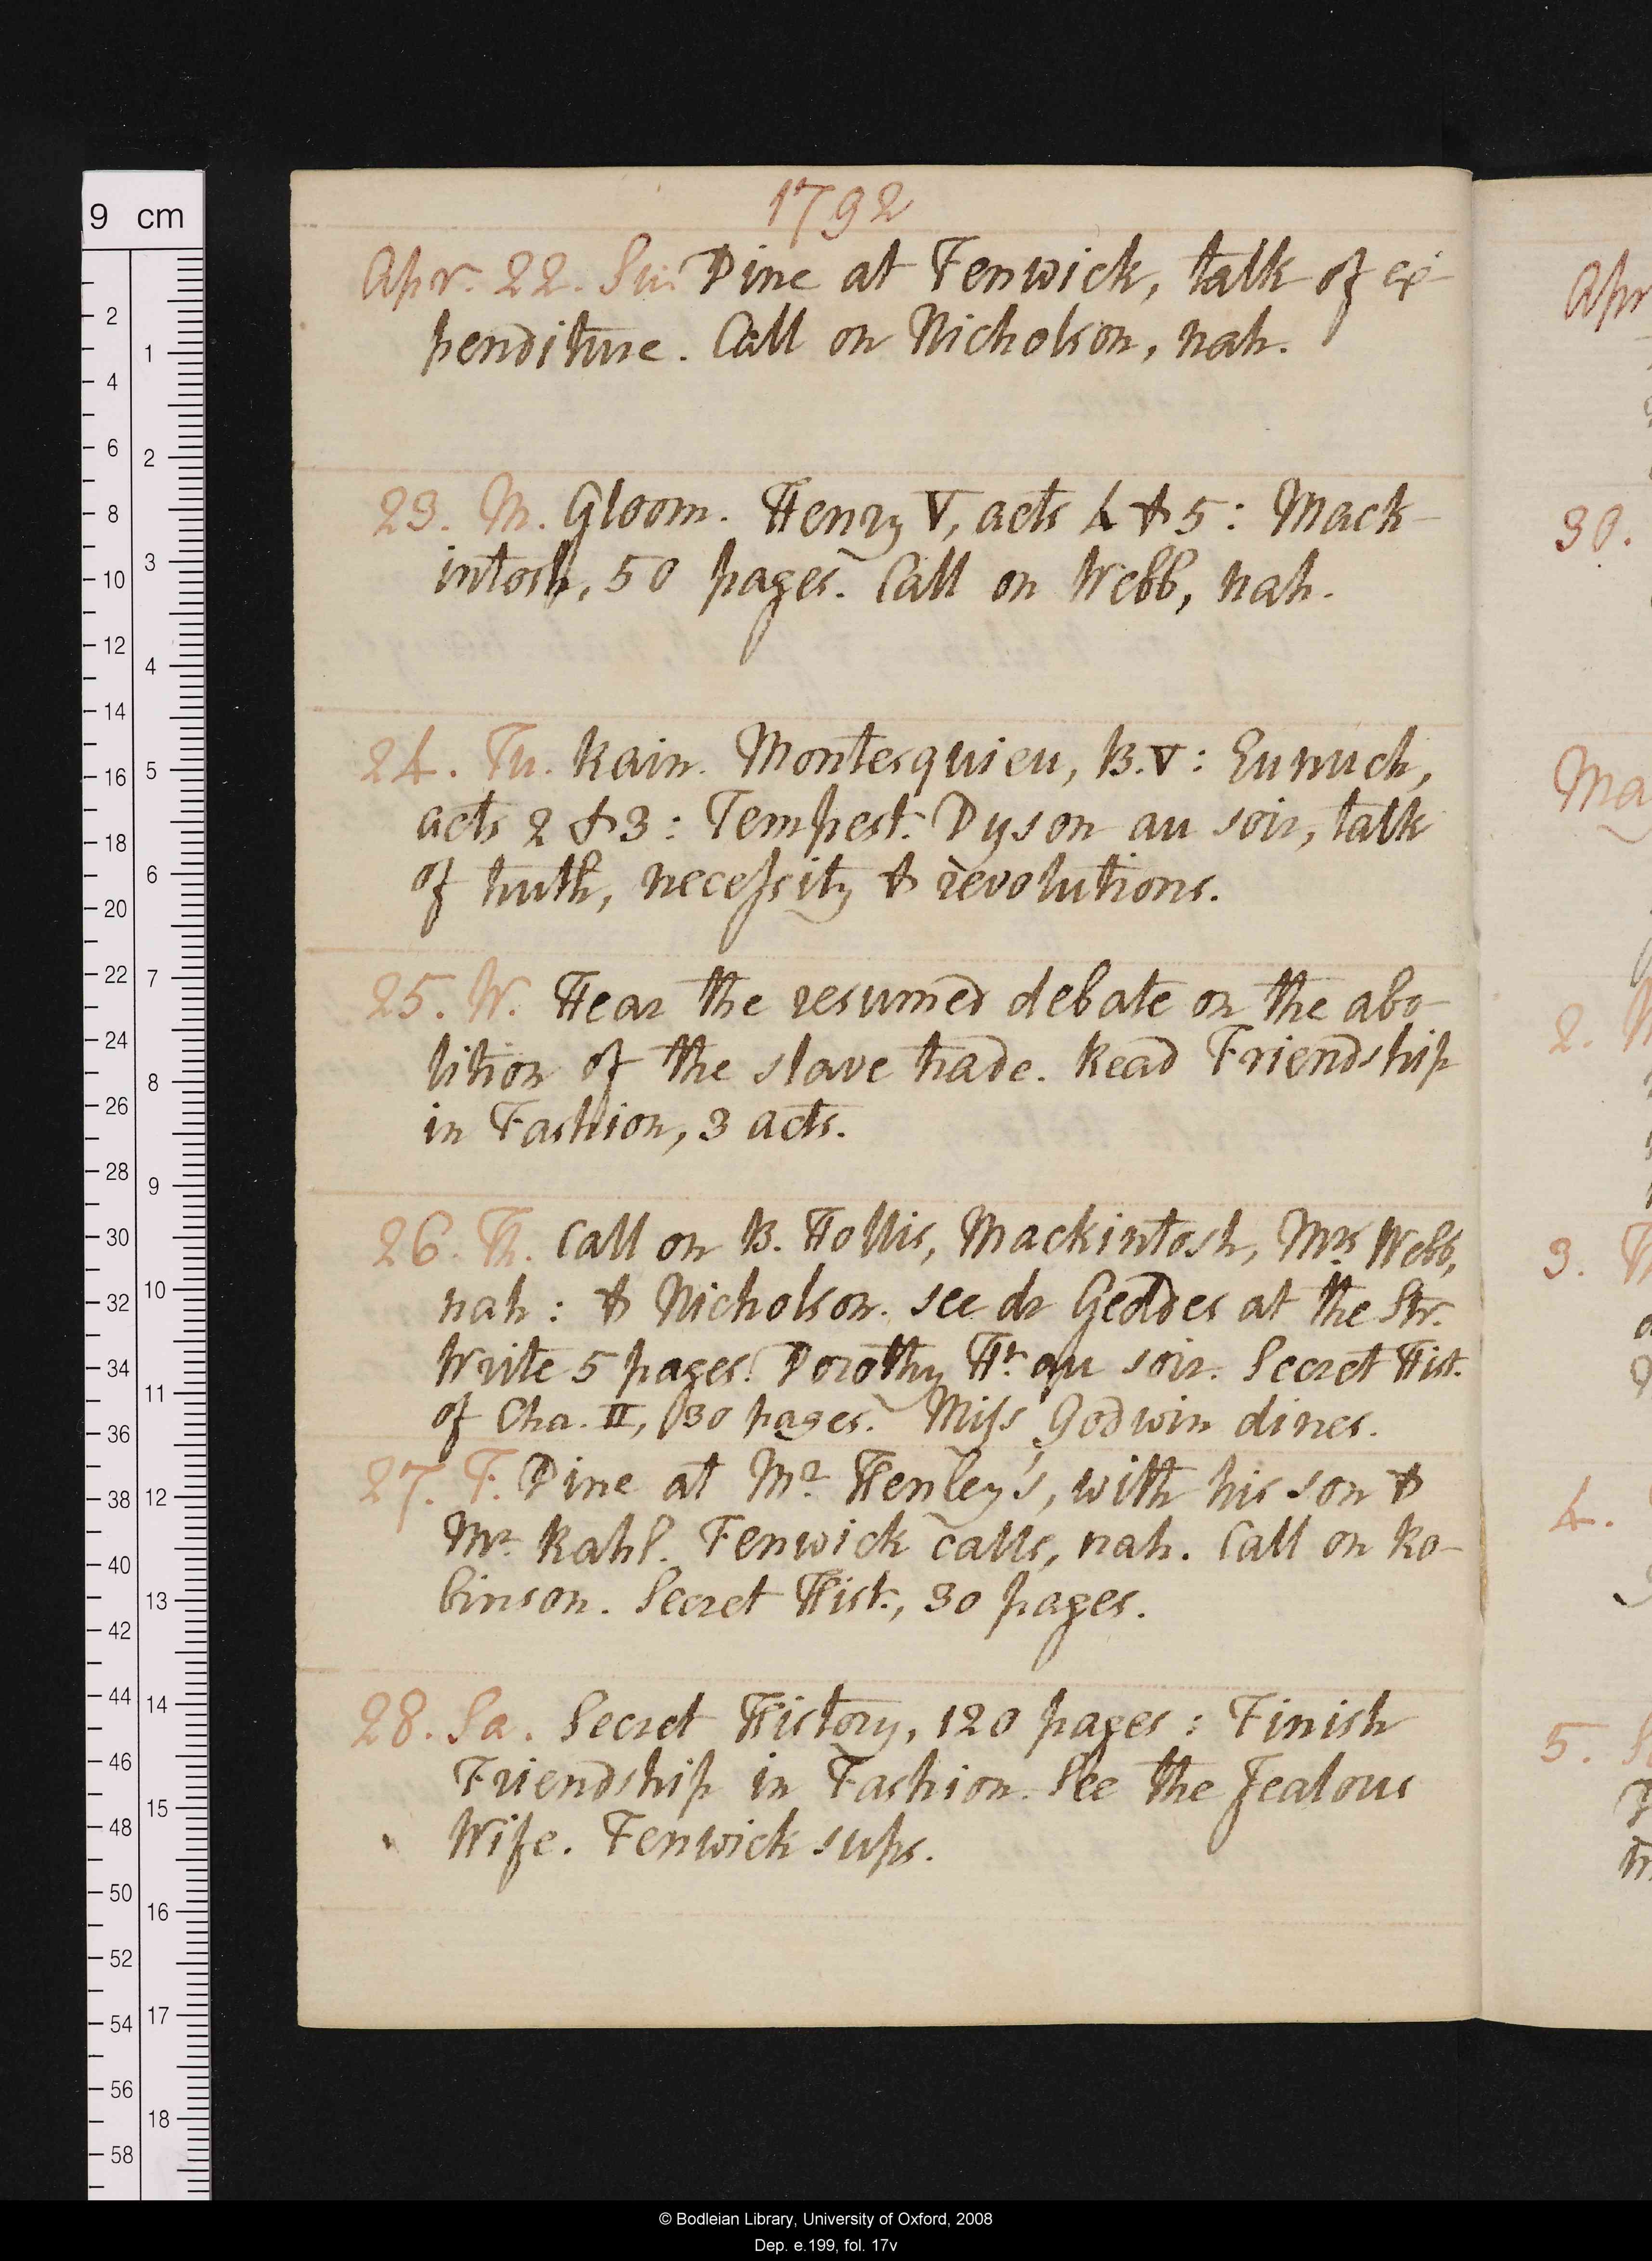 1792
Apr. 22. Su. Dine at Fenwick, talk of ex-
penditure. Call on Nicholson, nah.
23. M. Gloom. Henry V, acts 4 & 5: Mack-
intosh, 50 pages. Call on Webb, nah.
24. Tu. Rain. Montesquieu, B. V: Eunuch,
acts 2 & 3: Tempest. Dyson au soir, talk
of truth, necessity & revolutions.
25. W. Hear the resumed debate on the abo-
lition of the slave trade. Read Friendship
in Fashion, 3 acts.
26. Th. Call on B. Hollis, Mackintosh, Mrs Webb,
nah: & Nicholson. see dr Geddes at the Str.
Write 5 pages. Dorothy Hr. au soir. Secret Hist.
of Cha. II, 30 pages. Miss Godwin dines.
27. F. Dine at Mr. Henley's, with his son &
Mr. Rahl. Fenwick calls, nah. Call on Ro-
binson. Secret Hist., 30 pages.
28. Sa. Secret History, 120 pages: Finish
Friendship in Fashion. See the Jealous
Wife. Fenwick sups.
Apr
30.
Ma
2.
3.
4.
5.
9 cm
2
4
6
8
10
12
14
16
18
20
22
24
26
28
30
32
34
36
38
40
42
44
46
48
50
52
54
56
58
1
2
3
4
5
6
7
8
9
10
11
12
13
14
15
16
17
18
© Bodleian Library, University of Oxford, 2008
Dep. e.199, fol. 17v